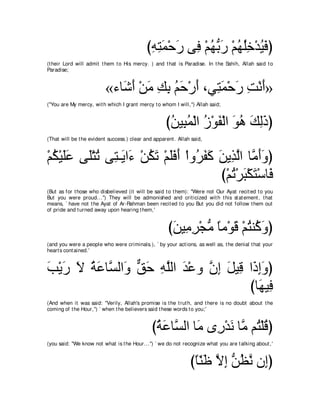 (فَيُدْخِلُهُمْ رَبُّهُمْ فِى رَحْمَتِهِ)
(their Lord will admit them to His mercy. ) and that is Paradise. In the Sahih, Allah said to Paradise,
«أَنْتِ رَحْمَتِي، أَرْحَمُ بِكِ مَنْ أَشَاءُ»
("You are My mercy, with which I grant mercy to whom I will,'') Allah said;
(ذَلِكَ هُوَ الْفَوْزُ الْمُبِينُ)
(That will be the evident success.) clear and apparent. Allah said,
(وَأَمَّا الَّذِينَ كَفَرُواْ أَفَلَمْ تَكُنْ ءَايَـتِى تُتْلَى عَلَيْكُمْ فَاسْتَكْبَرْتُمْ)
(But as for those who disbelieved (it will be said to them): "Were not Our Ayat recited to you But you were proud...'') They will be admonished and criticized with this statement, that means, `have not the Ayat of Ar-Rahman been recited to you But you did not follow them out of pride and turned away upon hearing them,'
(وَكُنْتُمْ قَوْماً مُّجْرِمِينَ)
(and you were a people who were criminals.), `by your actions, as well as, the denial that your hearts contained.'
(وَإِذَا قِيلَ إِنَّ وَعْدَ اللَّهِ حَقٌّ وَالسَّاعَةُ لاَ رَيْبَ فِيهَا)
(And when it was said: "Verily, Allah's promise is the truth, and there is no doubt about the coming of the Hour,'') `when the believers said these words to you,'
(قُلْتُم مَّا نَدْرِى مَا السَّاعَةُ)
(you said: "We know not what is the Hour...'') `we do not recognize what you are talking about,'
(إِن نَّظُنُّ إِلاَّ ظَنّاً)